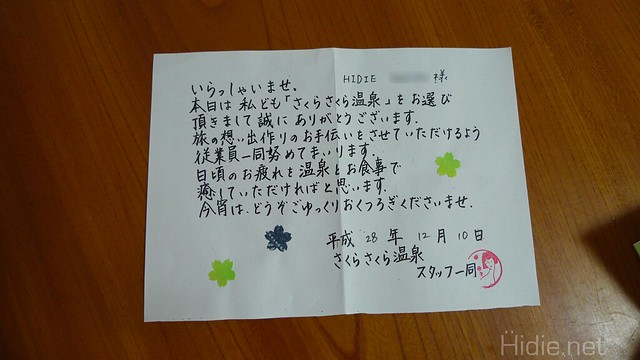 いらっしゃいませ。
HIDIE 様
本日は私ども「さくらさくら温泉」をお選び
頂きまして誠にありがとうございます。
旅の想い出作りのお手伝いをさせていただけるよう
従業員一同努めてまいります。
日頃のお疲れを温泉とお食事で
癒していただければと思います。
今宵は、どうぞごゆっくりおくつろぎくださいませ。
平成 28 年 12 月 10 日
さくらさくら温泉
スタッフ一同
Hidie.net